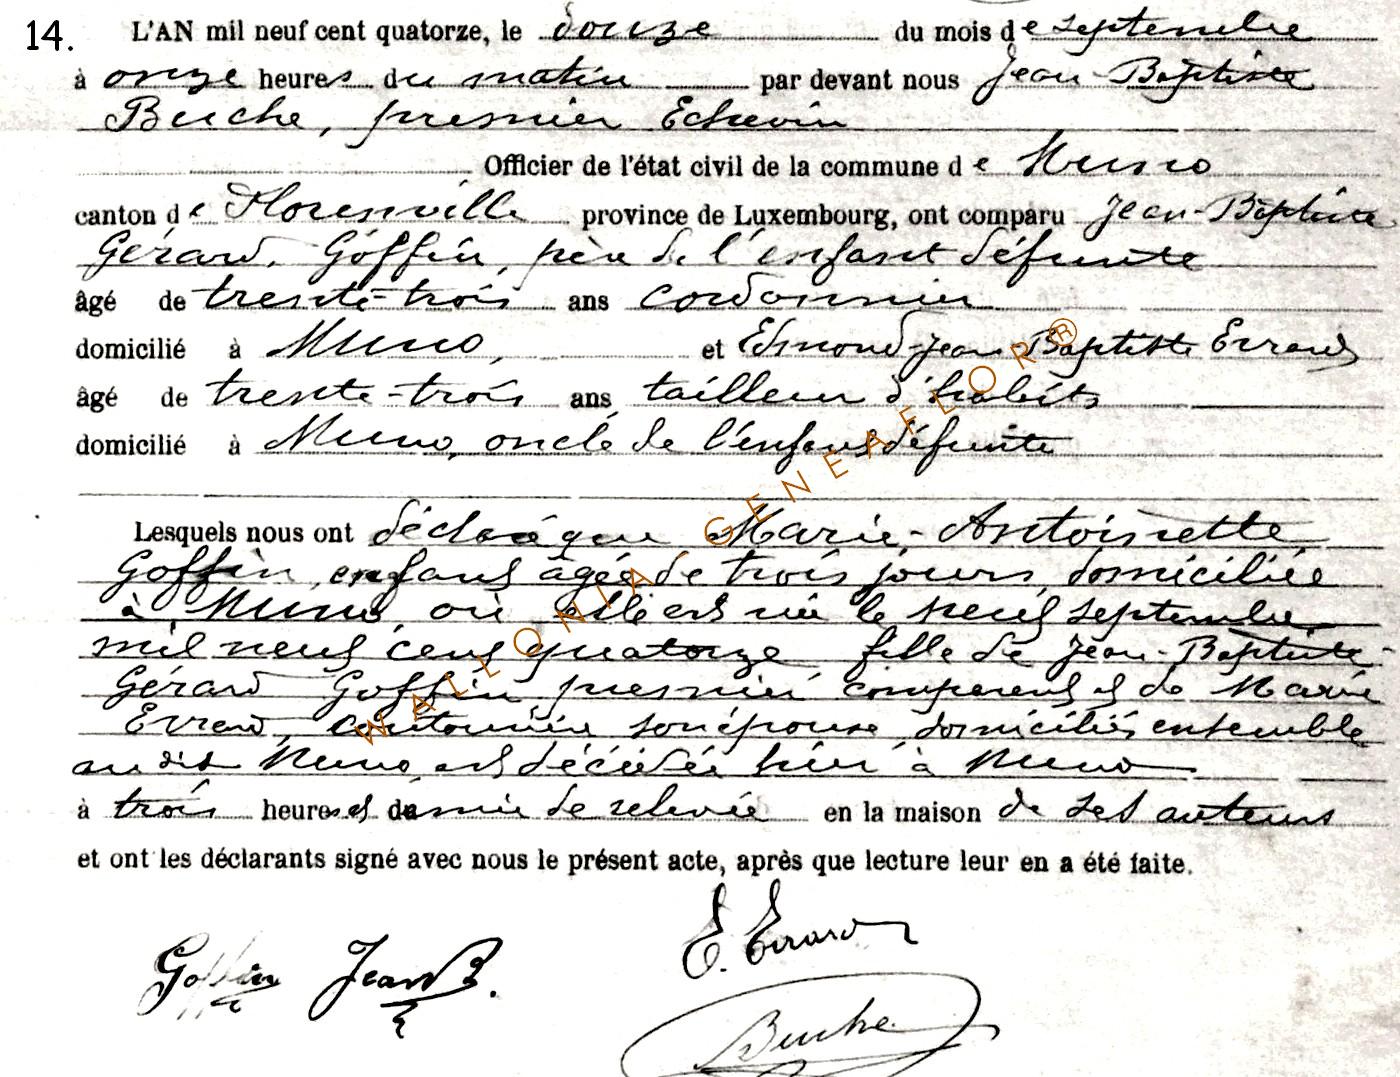 14. L'AN mil neuf cent quatorze, le douze du mois de septembre
à onze heures du matin par devant nous Jean-Baptiste
Buche, premier Echevin
Officier de l'état civil de la commune de Muno
canton de Florenville province de Luxembourg, ont comparu Jean-Baptiste
Gérard Goffin, père de l'enfant défunte
âgé de trente-trois ans cordonnier
domicilié à Muno, et Edmond-Jean Baptiste Evrard
âgé de trente-trois ans tailleur d'habits
domicilié à Muno, oncle de l'enfant défunte
Lesquels nous ont déclaré que Marie-Antoinette
Goffin, enfant âgée de trois jours domiciliée
à Muno, où elle est née le neuf septembre
mil neuf cent quatorze fille de Jean-Baptiste-
Gérard Goffin premier comparent et de Marie
Evrard, son épouse, domiciliés ensemble
au dit Muno, est décédée hier à Muno
à trois heures et demie de relevée en la maison de ses auteurs
et ont les déclarants signé avec nous le présent acte, après que lecture leur en a été faite.
Goffin Jean B. E. Evrard
Buche
WALLONIA GENEAFLOR®